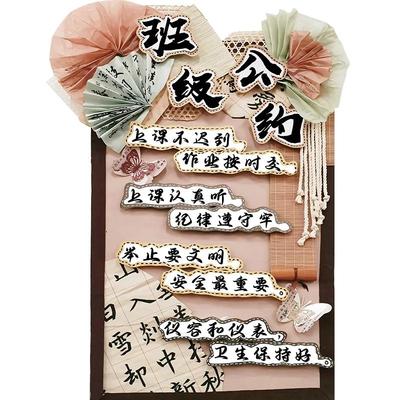 班级公约
上课不迟到
作业按时交
上课认真听
纪律遵守牢
举止要文明
安全最重要
仪容和仪表
卫生保持好
山入
白雪
却中
新秋